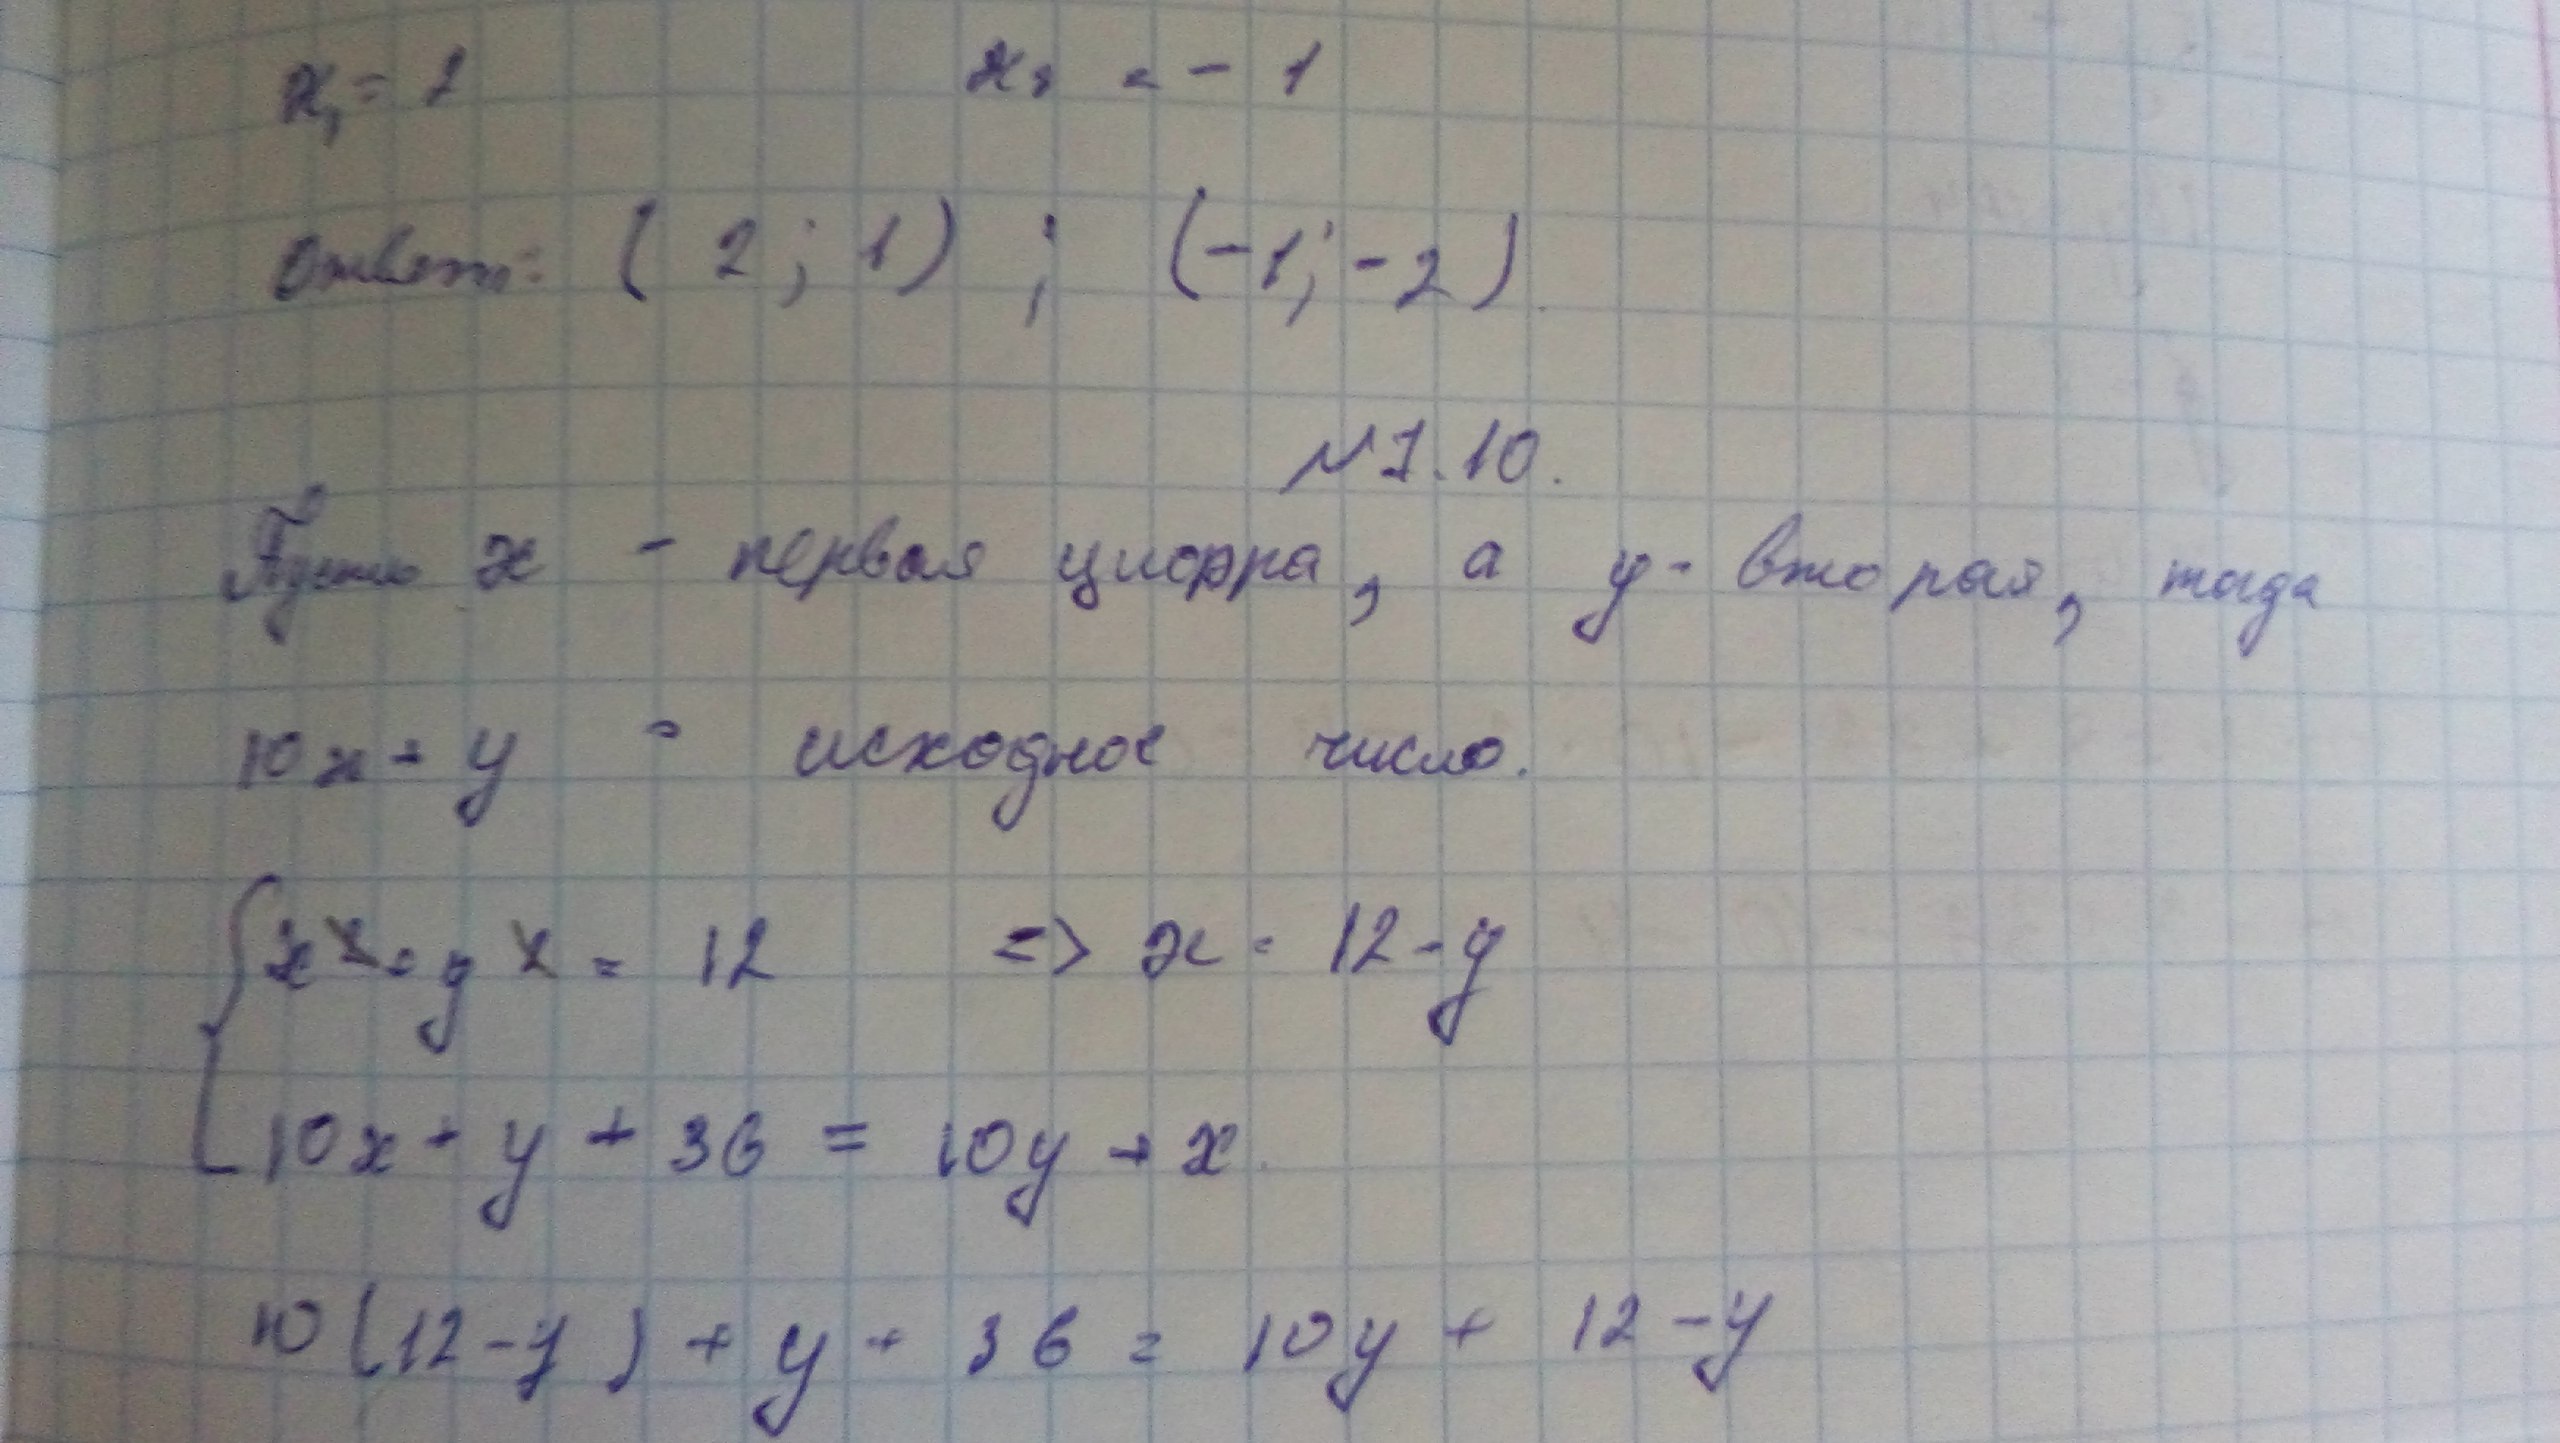 x₁ = 2 x₂ = - 1
Ответ: ( 2 ; 1 ) ; ( - 1 ; - 2 )
№ 7.10.
Пусть x - первая цифра, а y - вторая, тогда
10x + y - исходное число.
x + y = 12 => x = 12 - y
10x + y + 36 = 10y + x
10 ( 12 - y ) + y + 36 = 10y + 12 - y